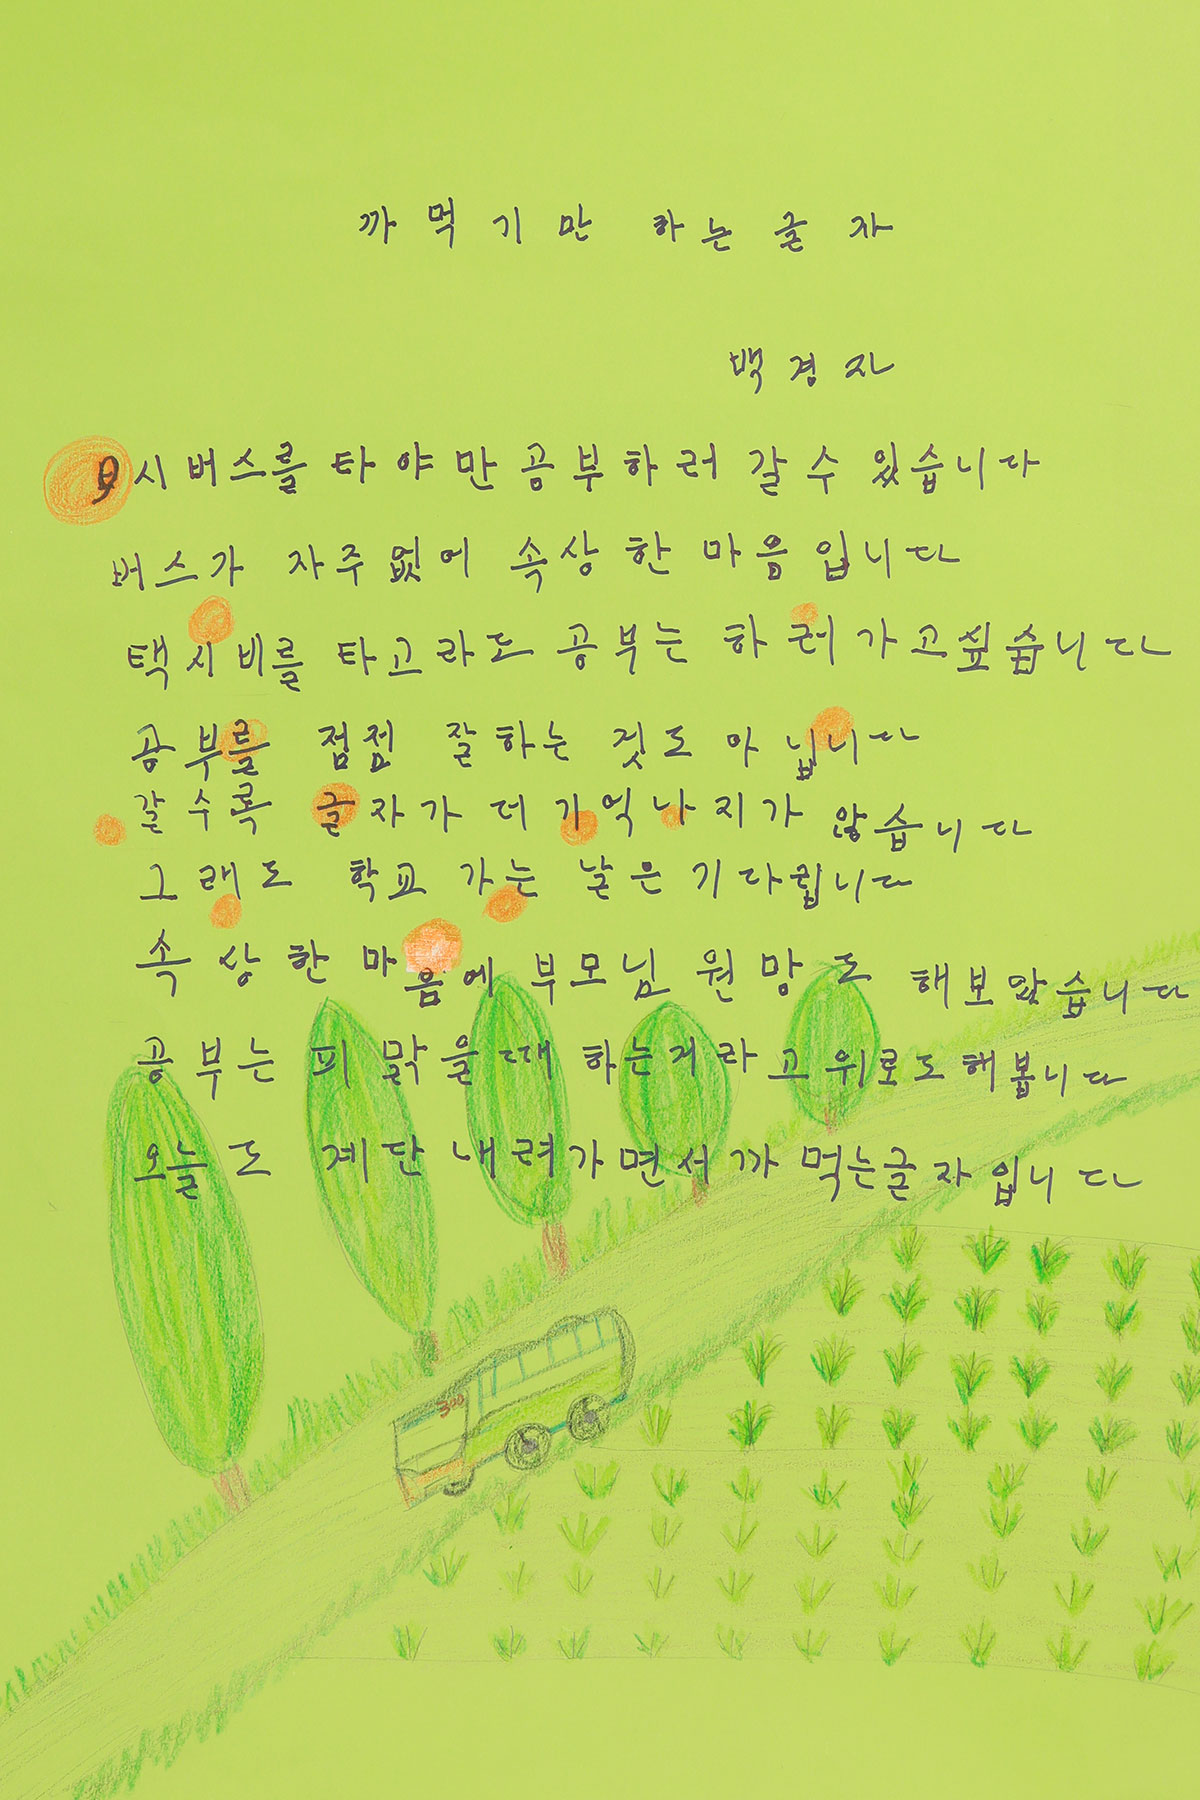 까먹기만 하는글자
백경자
9시버스를 타야만공부하러 갈수 있습니다
버스가 자주없어 속상한 마음입니다
택시비를 타고라도 공부는 하러가고싶습니다
공부를 점점 잘하는 것도 아닙니다
갈수록 글자가 더 기억나지가 않습니다
그래도 학교 가는 날은 기다립니다
속상한 마음에 부모님 원망도 해보았습니다
공부는 피 맑을때 하는거라고 위로도해봅니다
오늘도 계단 내려가면서까 먹는글자입니다
300